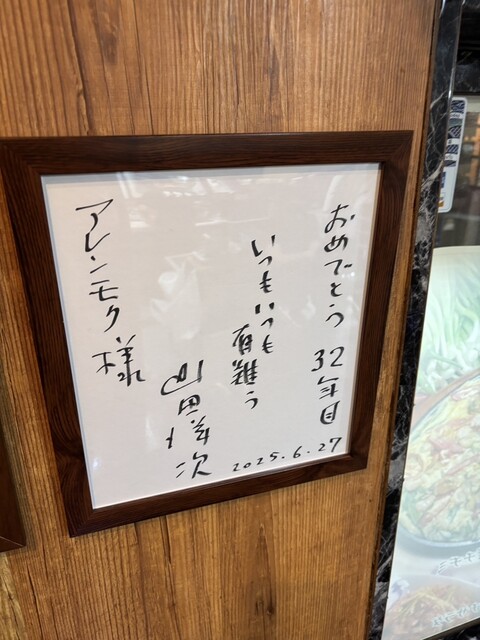 おめでとう 32年目
2025.6.27
いつもいつも
有難う
山田洋次
アレンモク様